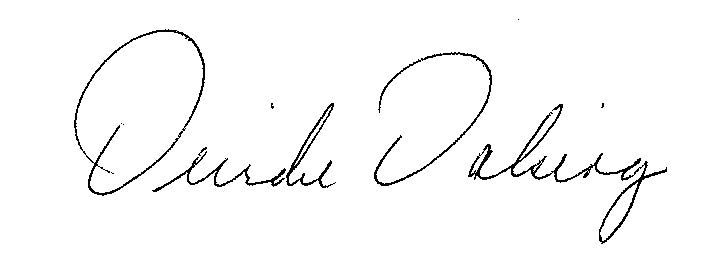 Deirdre Dalsing